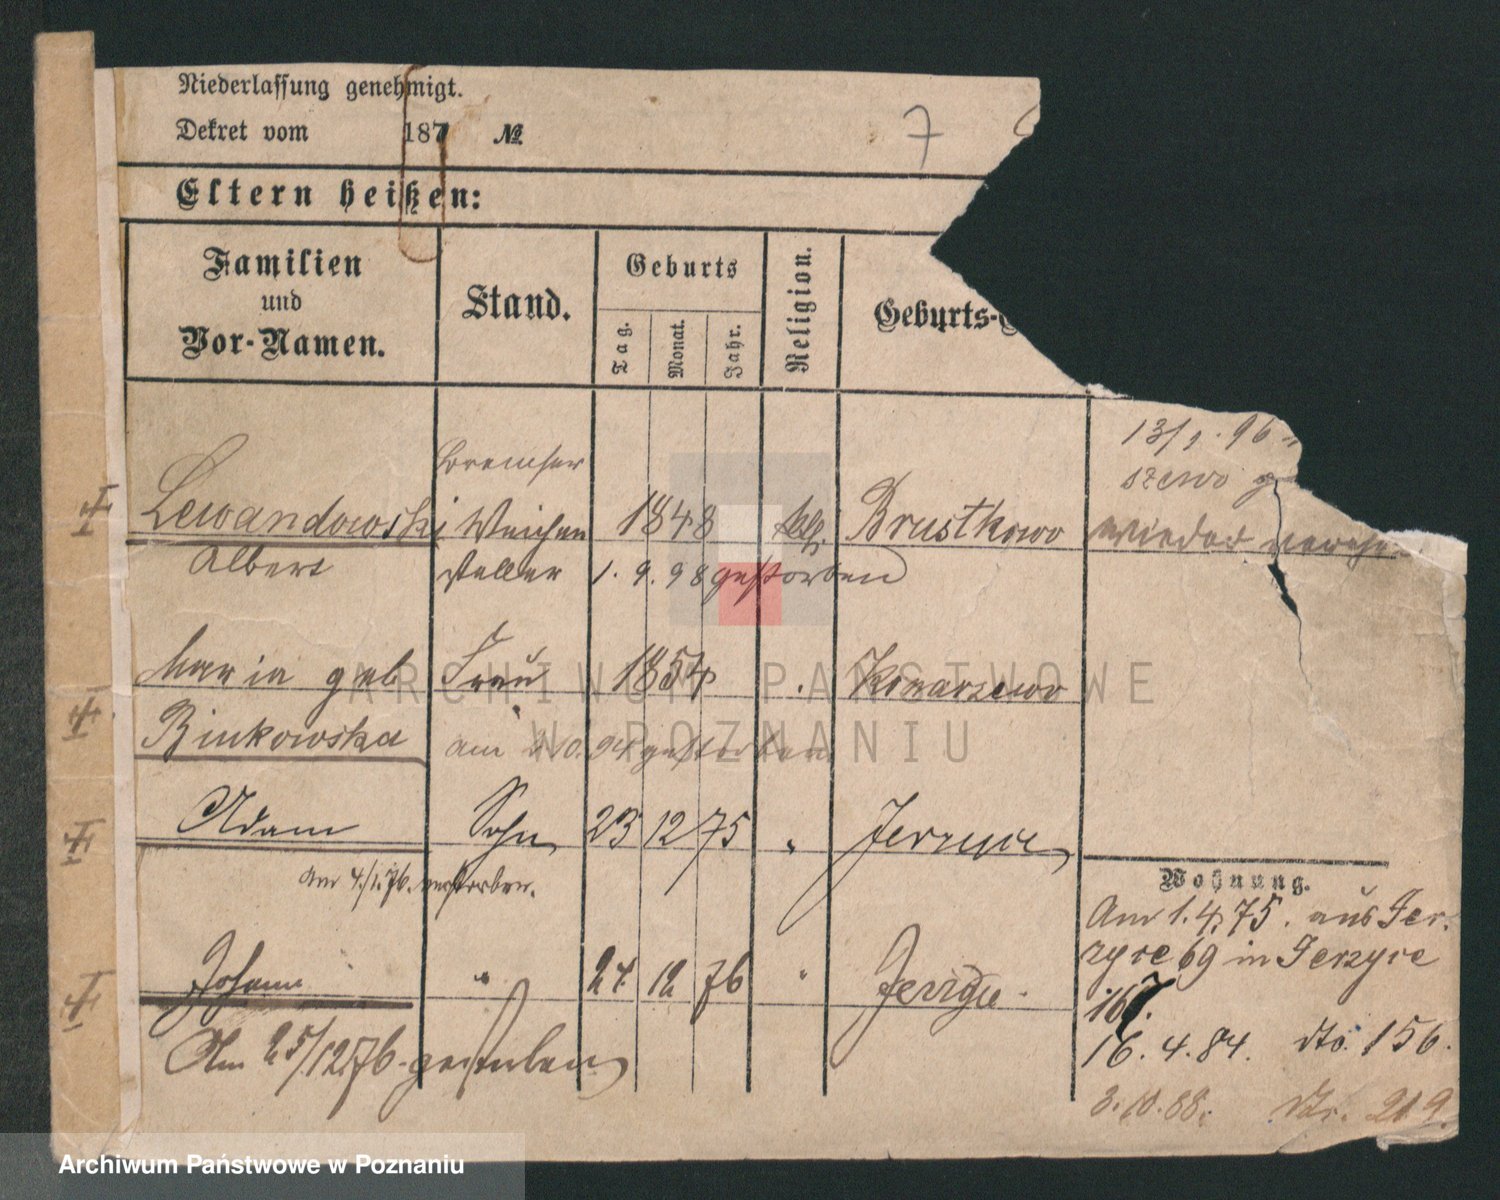 Niederlassung genehmigt.
Dekret vom 187 №
7
Eltern heißen:
Familien
und
Vor-Namen.
Stand.
Geburts
Tag.
Monat.
Jahr.
Religion.
Geburts-
13/1. 96
szewo
Bremser
Lewandowski Weichen 1848 kath. Brustkowo wieder
Albert steller 1. 9. 98 gestorben
Maria geb Frau 1854 Konarzewo
Binkowska am 94 gestorben
Adam Sohn 23 12 75 " Jerzyce
Am 4./1.76. verstorben.
Wohnung.
Am 1.4.75. aus Jer-
zyce 69 in Jerzyce
167.
Johann " 24 12 76 " Jerzyce
16. 4. 84. dto. 156.
Am 25/12 76. gestorben
3. 10. 88. Nr. 219.
ARCHIWUM PAŃSTWOWE
W POZNANIU
Archiwum Państwowe w Poznaniu